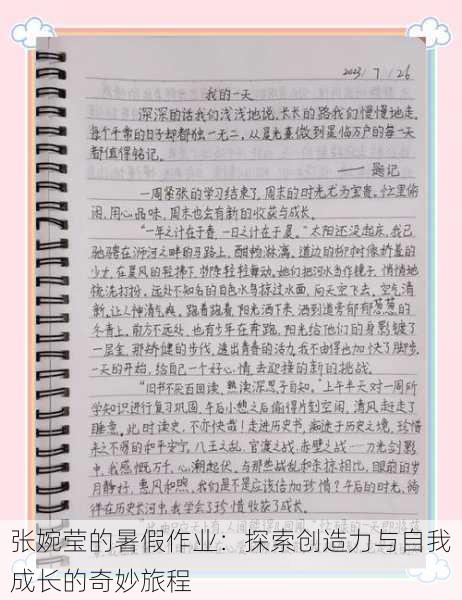 2023/7/26
我的一天
深深的话我们浅浅地说,长长的路我们慢慢地走。
每个平常的日子却都独一无二,从晨光熹微到星临万户的每一天
都值得铭记。
——题记
一周紧张的学习结束了,周末的时光尤为宝贵。忙里偷
闲,用心品味,周末也会有新的收获与成长。
“一年之计在于春,一日之计在于晨。”太阳还没起床,我已
驰骋在浉河之畔的马路上,酣畅淋漓。道边的柳树像娇羞的
少女,在晨风的轻拂下,轻轻舞动。她们把河水当作镜子,悄悄地
梳洗打扮。远处不知名的白色水鸟掠过水面,向天空飞去。空气清
新,让人神清气爽。跑着跑着,阳光洒下来,洒到道旁郁郁葱葱的
冬青上。前方不远处,也有少年在奔跑,阳光给他们的身影镀了
一层金,那矫健的步伐,透出青春的活力,我不由得也加快了脚步。
一天的开始,给自己一个好心情,去迎接的新的挑战。
“旧书不厌百回读,熟读深思子自知。”上午半天对一周所
学知识进行复习巩固,午后小憩之后偷得片刻空闲,清风赶走了
睡意。此时读史,不亦快哉!走进历史书,痴迷于历史之境,珍惜
来之不易的和平安宁。八王之乱,官渡之战,赤壁之战——刀光剑影
中,我感慨万千,心潮起伏,与那些战乱和杀掠相比,眼前的岁
月静好,惠风和煦,我们是不是应该倍加珍惜?午后的时光,徜
徉在历史长河中,我学会了珍惜收获了成长。
张婉莹的暑假作业:探索创造力与自我
成长的奇妙旅程